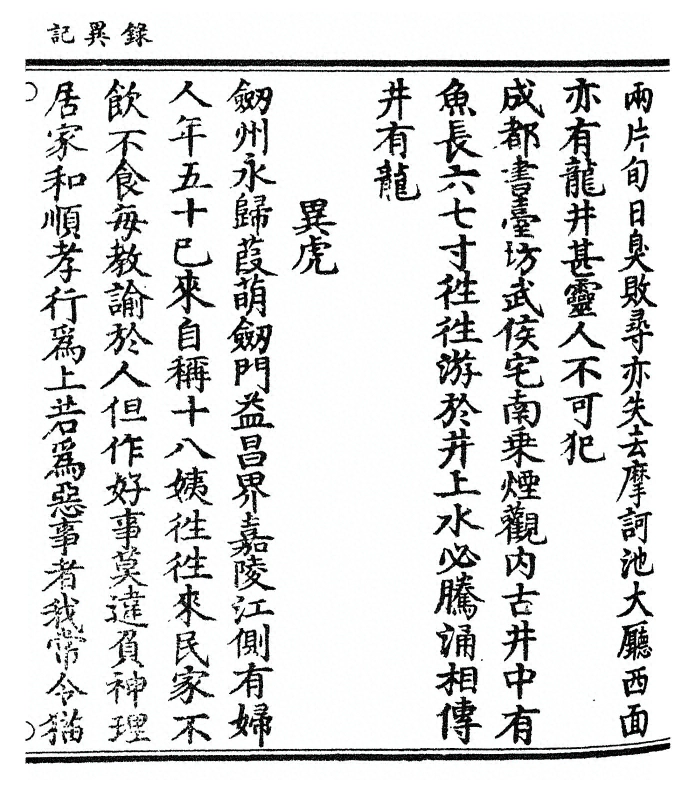 錄異記
兩片旬日臭敗尋亦失去摩訶池大廳西面
亦有龍井甚靈人不可犯
成都書臺坊武侯宅南乘煙觀内古井中有
魚長六七寸徃徃游於井上水必騰涌相傳
井有龍
異虎
劒州永歸葭萌劒門益昌界嘉陵江側有婦
人年五十已來自稱十八姨徃徃來民家不
飲不食每教諭於人但作好事莫違負神理
居家和順孝行爲上若爲惡事者我常令猫